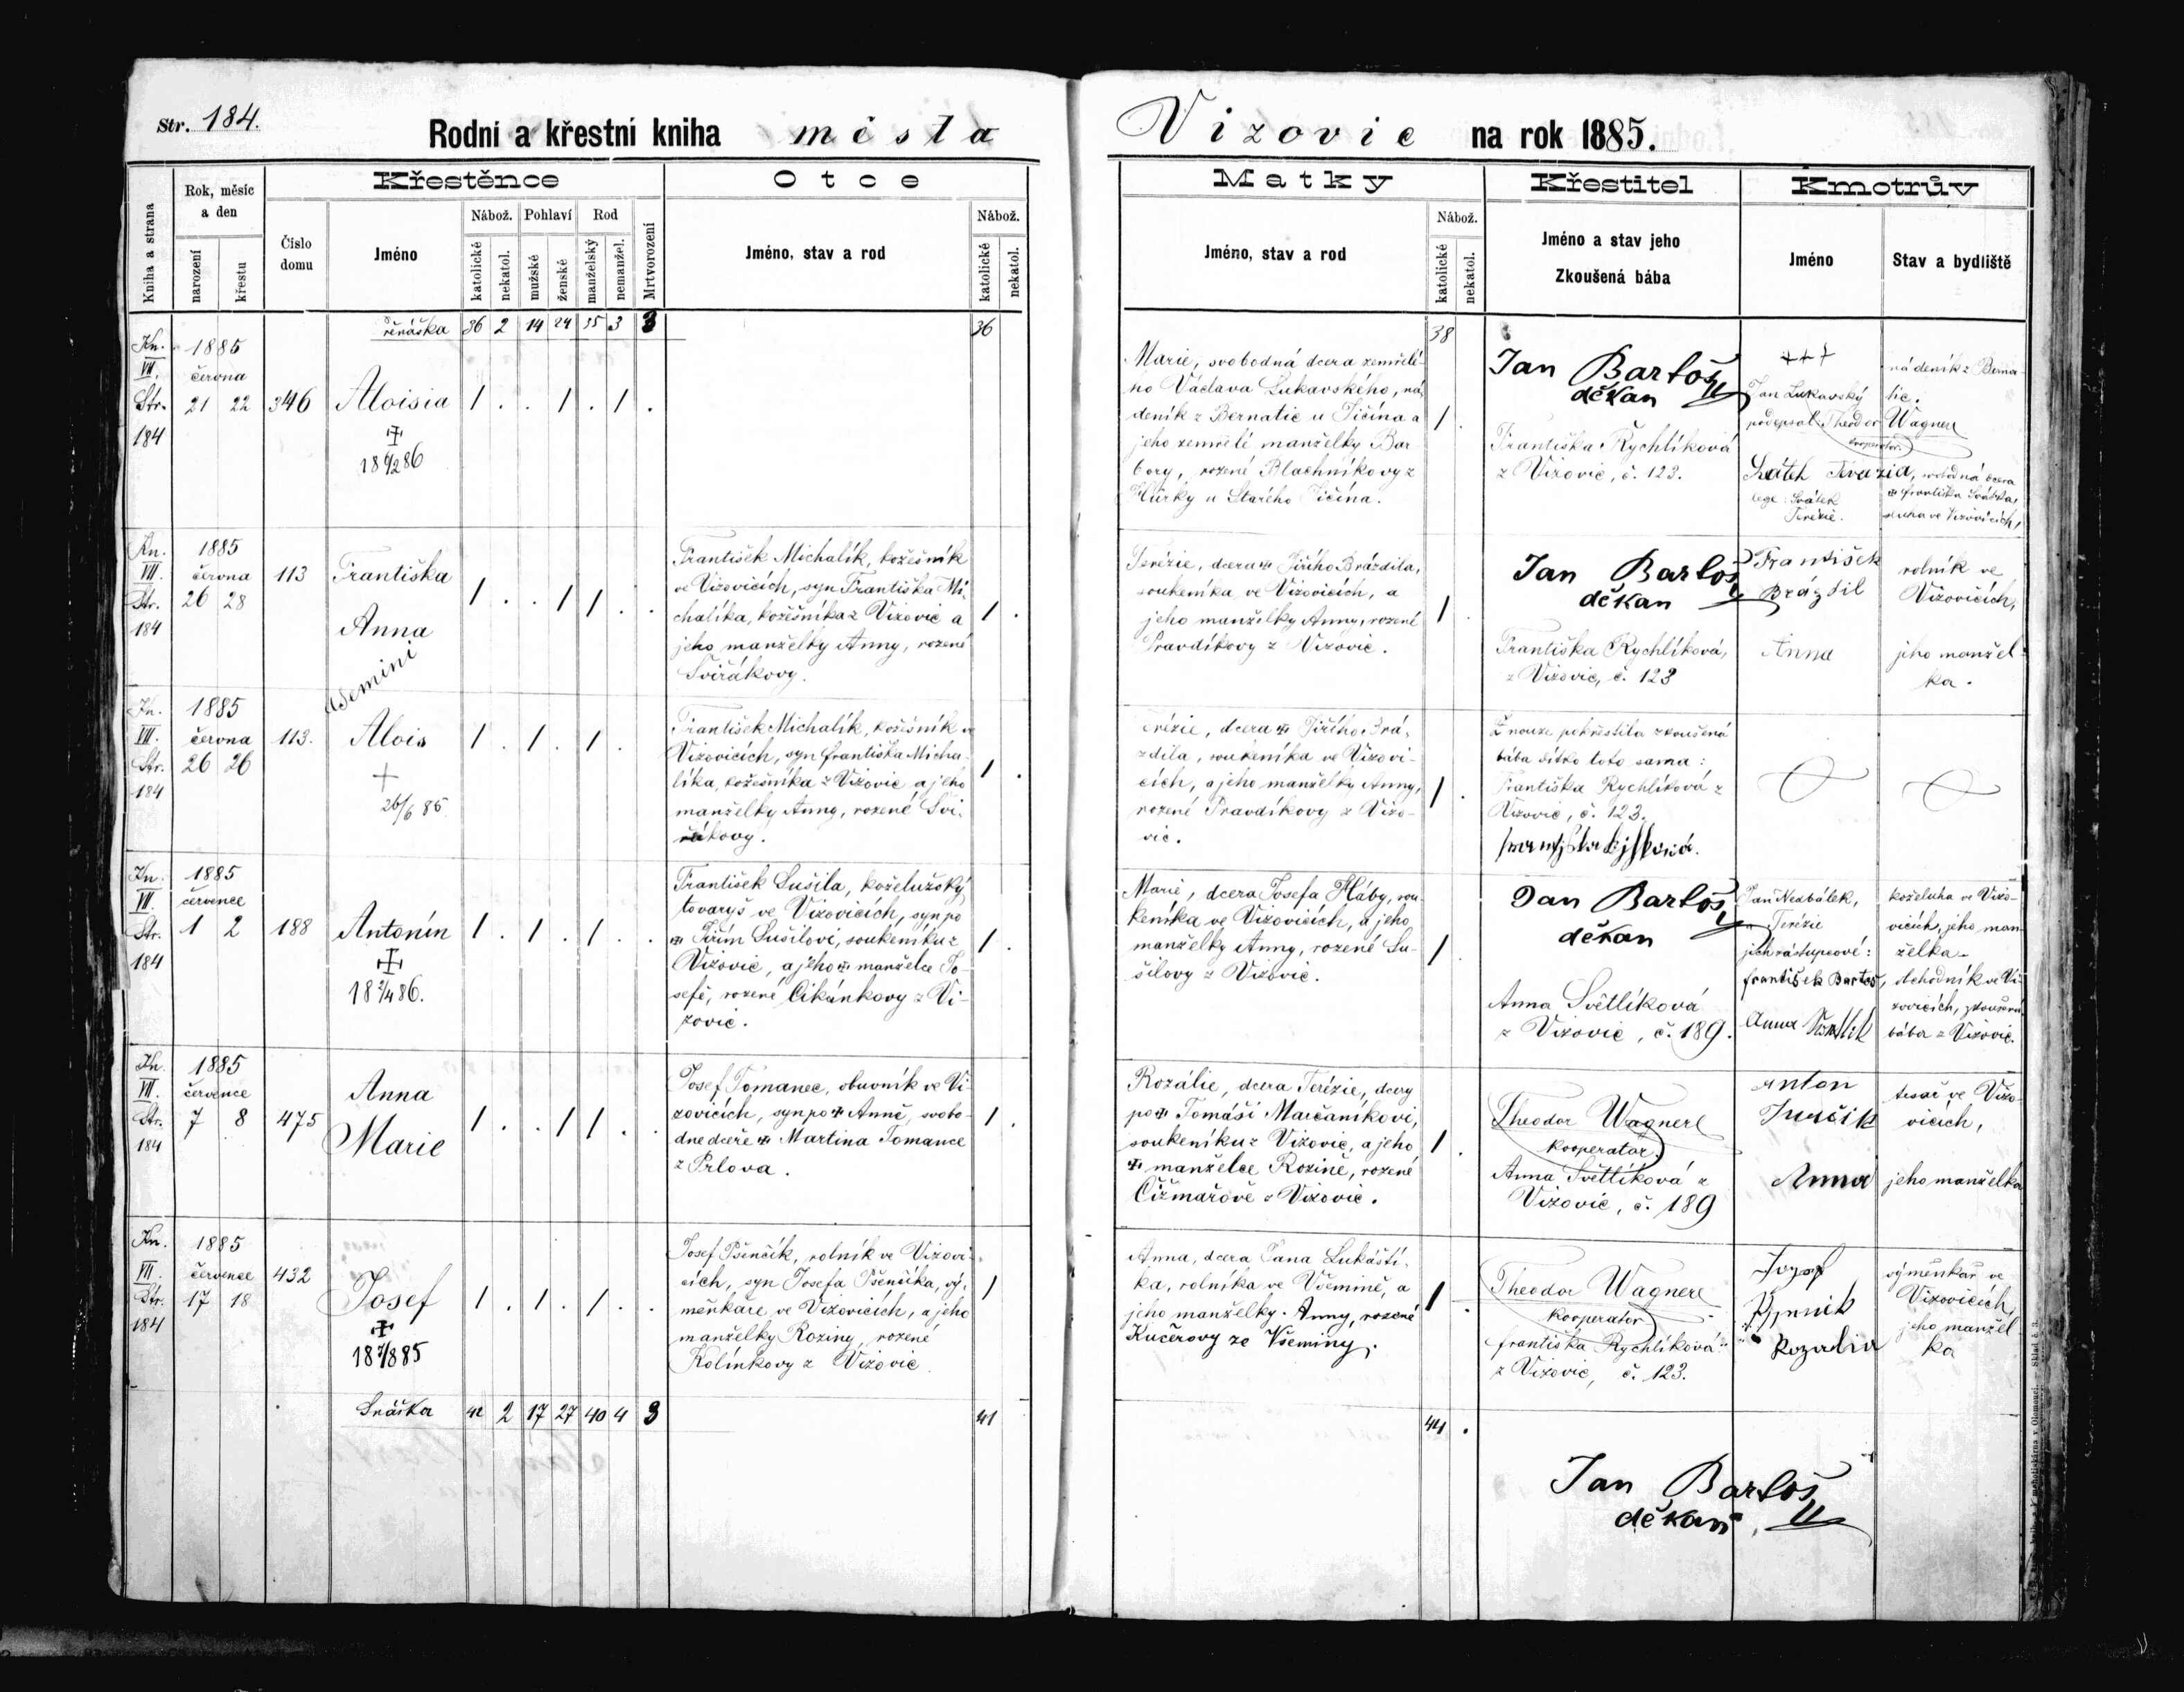 Str. 184.
Rodní a křestní kniha města
Vizovic na rok 1885.
Kniha a strana
Rok, měsíc a den
narození
křestu
Křestěnce
Číslo domu
Jméno
Nábož.
katolické
nekatol.
Pohlaví
mužské
ženské
Rod
manželský
nemanžel.
Mrtvorozeni
Otce
Jméno, stav a rod
Nábož.
katolické
nekatol.
Matky
Jméno, stav a rod
Nábož.
katolické
nekatol.
Křestitel
Jméno a stav jeho
Zkoušená bába
Kmotrův
Jméno
Stav a bydliště
36 2 14 24 35 3 3
36
38
Kn. VII. Str. 184
1885
června
21 22
346
Aloisia
1 . . 1 . 1 .
Marie, svobodná dcera zemřelé-
ho Václava Lukavského, ná-
deník z Bernatic u Jičína a
jeho zemřelé manželky Bar-
bory, rozené Blachníkovy z
Hůrky u Starého Jičína.
1
Jan Bartoš
děkan
Františka Rychlíková
z Vizovic, č. 123.
+++
Jan Lukavský
podepsal Theodor Wagner
kooperator.
nádeník z Berna-
tic.
lege: Svátek
Terézie.
svobodná dcera
Františka Svátka,
ve Vizovicích,
Kn. VII. Str. 184
1885
června
26 28
113
Františka
Anna
Gemini
1 . . 1 1 . .
František Michalík, kožešník
ve Vizovicích, syn Františka Mi-
chalíka, kožešníka z Vizovic a
jeho manželky Anny, rozené
Svižákovy.
1 .
Terézie, dcera Jiřího Brázdila,
soukeníka ve Vizovicích, a
jeho manželky Anny, rozené
Pravdíkovy z Vizovic.
1 .
Jan Bartoš
děkan
Františka Rychlíková,
z Vizovic, č. 123
František
Brázdil
Anna
rolník ve
Vizovicích,
jeho manžel-
ka.
Kn. VII. Str. 184
1885
června
26 26
113.
Alois
+
26/6 85
1 . 1 . 1 .
František Michalík, kožešník ve
Vizovicích, syn Františka Micha-
líka, kožešníka z Vizovic a jeho
manželky Anny, rozené Svi-
žákovy.
1 .
Terézie, dcera Jiřího Brá-
zdila, soukeníka ve Vizovi-
cích, a jeho manželky Anny,
rozené Pravdíkovy z Vizo-
vic.
1 .
Z nouze pokřestila zkoušená
bába dítko toto sama:
Františka Rychlíková z
Vizovic, č. 123.
Kn. VII. Str. 184
1885
července
1 2
188
Antonín
18 2/4 86.
1 . 1 . 1 . .
František Sušila, koželužský
tovaryš ve Vizovicích, syn po
Jiřím Sušilovi, soukeníku z
Vizovic, a jeho manželce Jo-
sefě, rozené Cikánkovy z Vi-
zovic.
1 .
Marie, dcera Josefa Háby, sou-
keníka ve Vizovicích, a jeho
manželky Anny, rozené Su-
šilovy z Vizovic.
1 .
Jan Bartoš
děkan
Anna Světlíková
z Vizovic, č. 189.
Jan Nedbálek,
a Terézie
jich zástupcové:
František Bartoš,
Anna
koželuha ve Vizo-
vicích, jeho man-
želka.
obchodník ve Vi-
zovicích, zkoušená
bába z Vizovic.
Kn. VII. Str. 184
1885
července
7 8
475
Anna
Marie
1 . . 1 1 . .
Josef Tomanec, obuvník ve Vi-
zovicích, syn po Anně, svobo-
dne dceře Martina Tomance
z Prlova.
1 .
Rozálie, dcera Terézie, dcery
po Tomáši Marčaníkovi,
soukeníku z Vizovic, a jeho
manželce Rozině, rozené
Čižmářově z Vizovic.
1 .
Theodor Wagner
kooperator.
Anna Světlíková z
Vizovic, č. 189
Anton
Anna
tesař ve Vizo-
vicích,
jeho manželka
Kn. VII. Str. 184
1885
července
17 18
432
Josef
1 . 1 . 1 . .
Josef Pšenčík, rolník ve Vizovi-
cích, syn Josefa Pšenčíka, vý-
měnkáře ve Vizovicích, a jeho
manželky Roziny, rozené
Kolínkovy z Vizovic.
1
Anna, dcera Jana Lukáští-
ka, rolníka ve Všemině, a
jeho manželky Anny, rozené
Kučerovy ze Všeminy.
1 .
Theodor Wagner
kooperator
Františka Rychlíková
z Vizovic, č. 123.
Jozef
Rozalia
výměnkář ve
Vizovicích,
jeho manžel-
ka
Snáška 42 2 17 27 40 4 3
41
44 .
Jan Bartoš
děkan